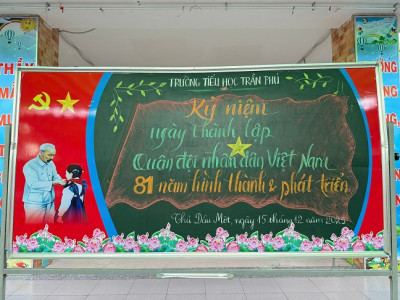 TRƯỜNG TIỂU HỌC TRẦN PHÚ
Kỷ niệm
ngày thành lập
Quân đội nhân dân Việt Nam
81 năm hình thành & phát triển
Thủ Dầu Một, ngày 15 tháng 12 năm 2025